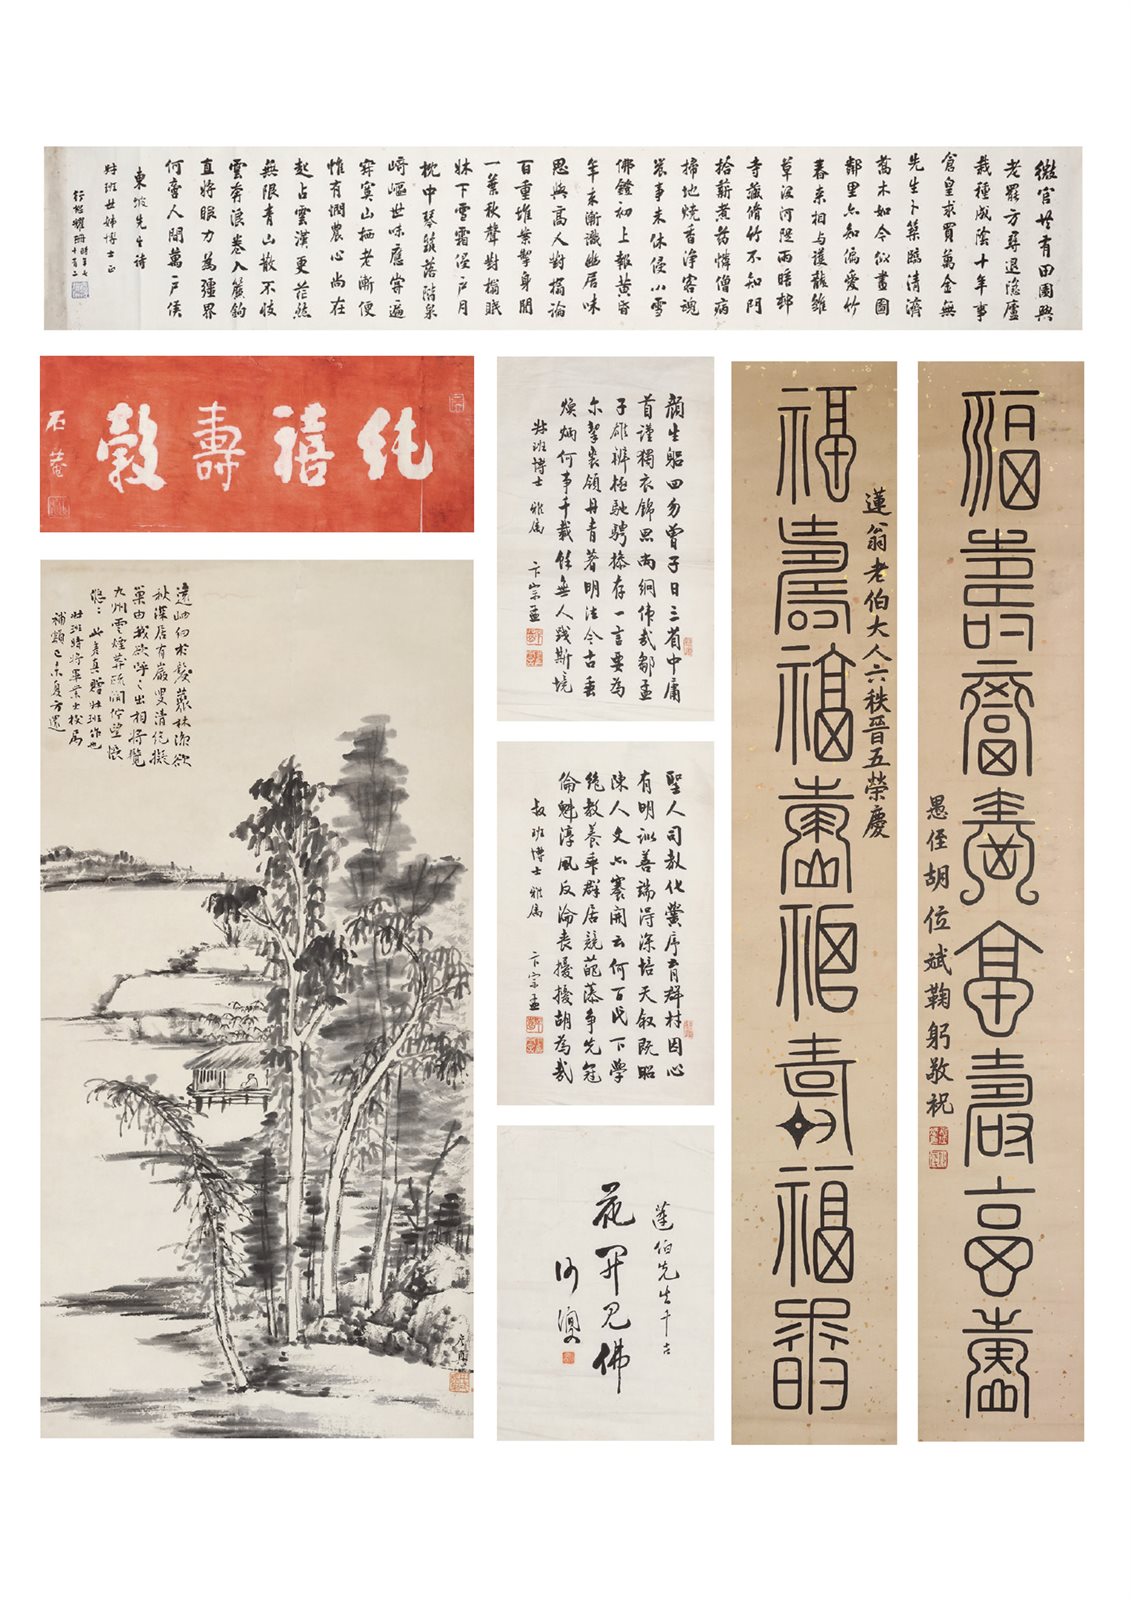 微官共有田園興
老罷方尋退隱廬
栽種成陰十年事
倉皇求買萬金無
先生卜築臨清濟
喬木如今似畫圖
鄰里亦知偏愛竹
春來相與護龍雛
草沒河隄雨暗邨
寺藏脩竹不知門
拾薪煮藥憐僧病
掃地燒香淨客魂
農事未休侵小雪
佛鐙初上報黃昏
年來漸識幽居味
思與高人對榻論
百重堆案掣身閒
一葉秋聲對榻眠
牀下雪霜侵戶月
枕中琴筑落階泉
崎嶇世味應嘗遍
寂寞山栖老漸便
惟有憫農心尚在
起占雲漢更茫然
無限青山散不收
雲奔浪卷入簾鉤
直將眼力為疆界
何啻人間萬戶侯
東坡先生詩
班世姊博士正
純禧壽穀
石菴
遠岫白於髮叢林漸欲
秋深居有嚴叟清絕擬
巢由我欲呼之出相將覽
九州雲煙間佇望悵
悠悠
班作也
補題己未夏方還
顏生躬四勿曾子日三省中庸
首謹獨衣錦思尚絅偉哉鄒孟
子雄辨極馳騁操存一言要為
爾挈裘領丹青著明法今古垂
煥炳何事千載餘無人踐斯境
班博士雅屬 卞宗孟
聖人司教化黌序育群材因心
有明訓善端得深培天敘既昭
陳人文亦褰開云何百代下學
絕教養乖群居競葩藻爭先冠
倫魁淳風反淪喪擾擾胡為哉
叔班博士雅屬 卞宗孟
蓮伯先生千古
花開見佛
福壽福壽福壽福壽
蓮翁老伯大人六秩晉五榮慶
福壽福壽福壽福壽
愚侄胡位斌鞠躬敬祝